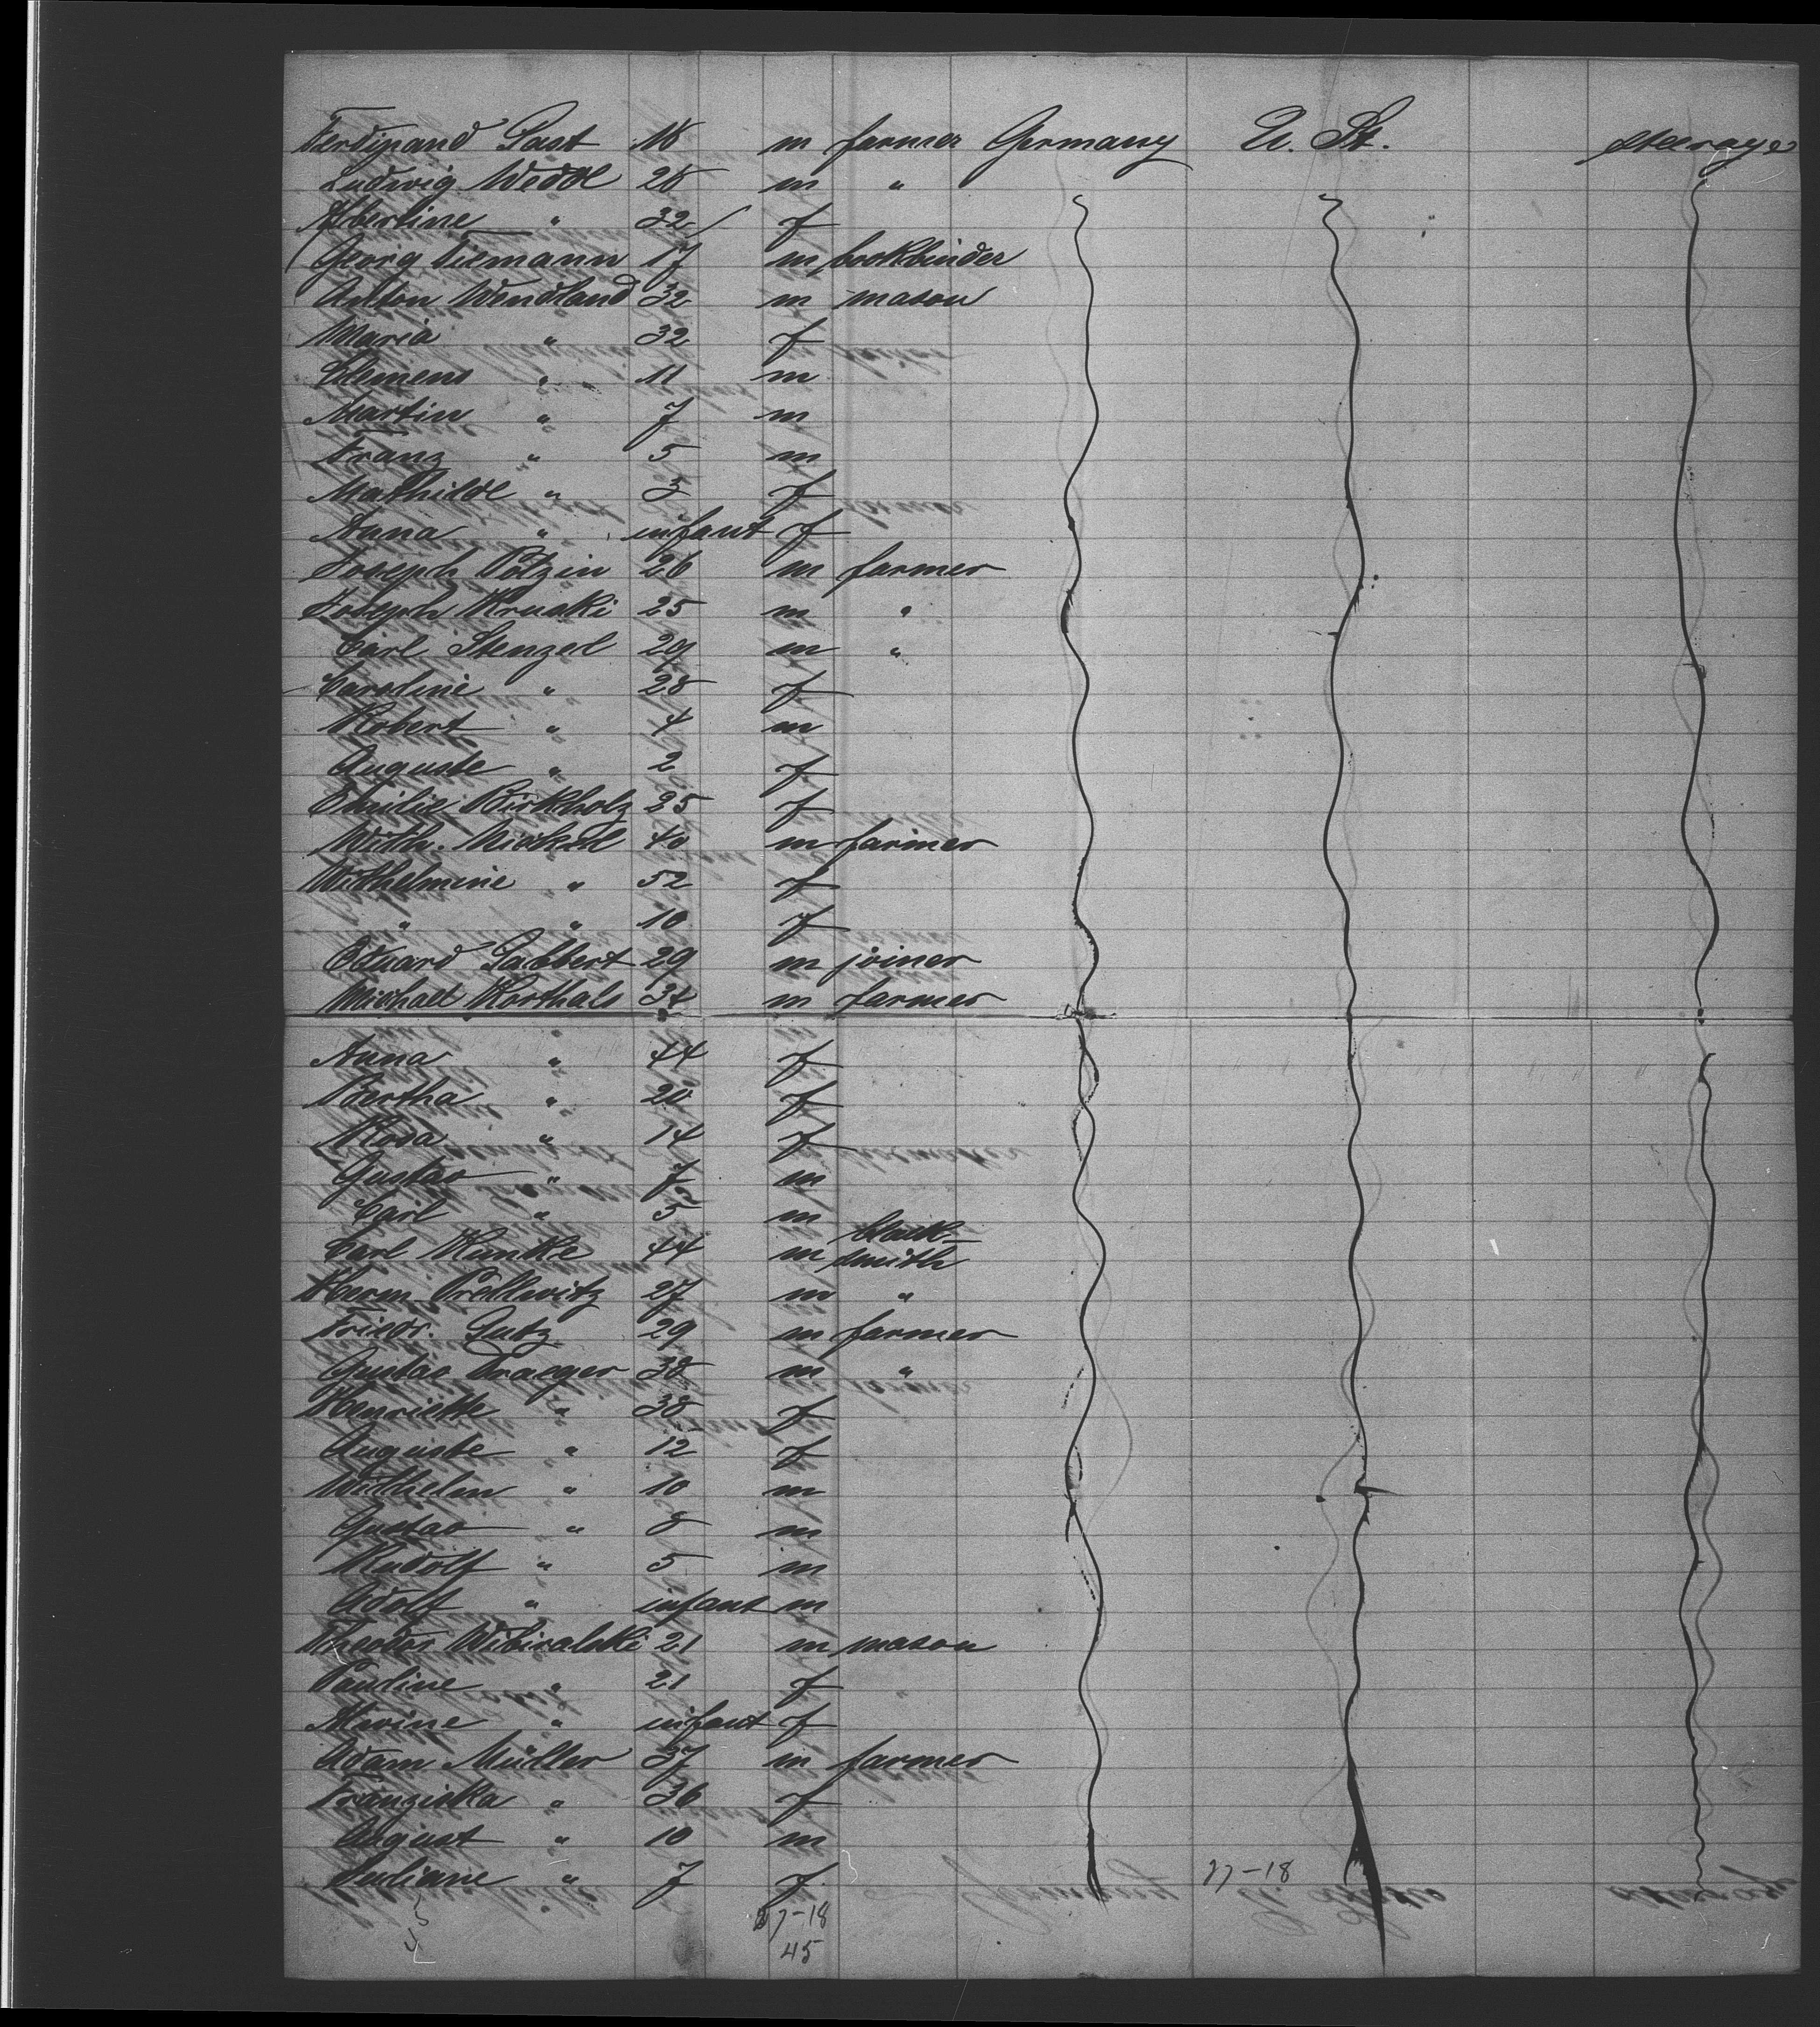 Ferdinand Gast 18 m farmer Germany U. St. steerage
Ludwig Wedde 28 m "
Albertine " 32 f
Georg Tiemann 17 m bookbinder
Anton Wendland 32 m mason
Maria " 32 f
Clemens " 11 m
Martin " 7 m
Franz " 5 m
Mathilde " 3 f
Anna " infant f
Joseph Potzin 26 m farmer
Joseph Kruski 25 m "
Carl Stenzel 29 m "
Caroline " 28 f
Robert " 4 m
Auguste " 2 f
Emilie Birkholz 25 f
Wilh. Nickel 40 m farmer
Wilhelmine " 52 f
" " 10 f
Eduard Gabbert 29 m joiner
Michael Korthals 34 m farmer
Anna " 44 f
Bertha " 20 f
Rosa " 14 f
Gustav " 7 m
Carl " 5 m
Carl Kuntke 44 m black-
smith
Herm. Prellwitz 27 m "
Friedr. Gutz 29 m farmer
Gustav Draeger 38 m "
Henriette " 38 f
Auguste " 12 f
Wilhelm " 10 m
Gustav " 8 m
Rudolf " 5 m
Adolf " infant m
Theodor 21 m mason
Pauline " 21 f
" infant f
Adam Müller 37 m farmer
Franziska " 36 f
August " 10 m
Juliane " 7 f
27-18
27-18
45